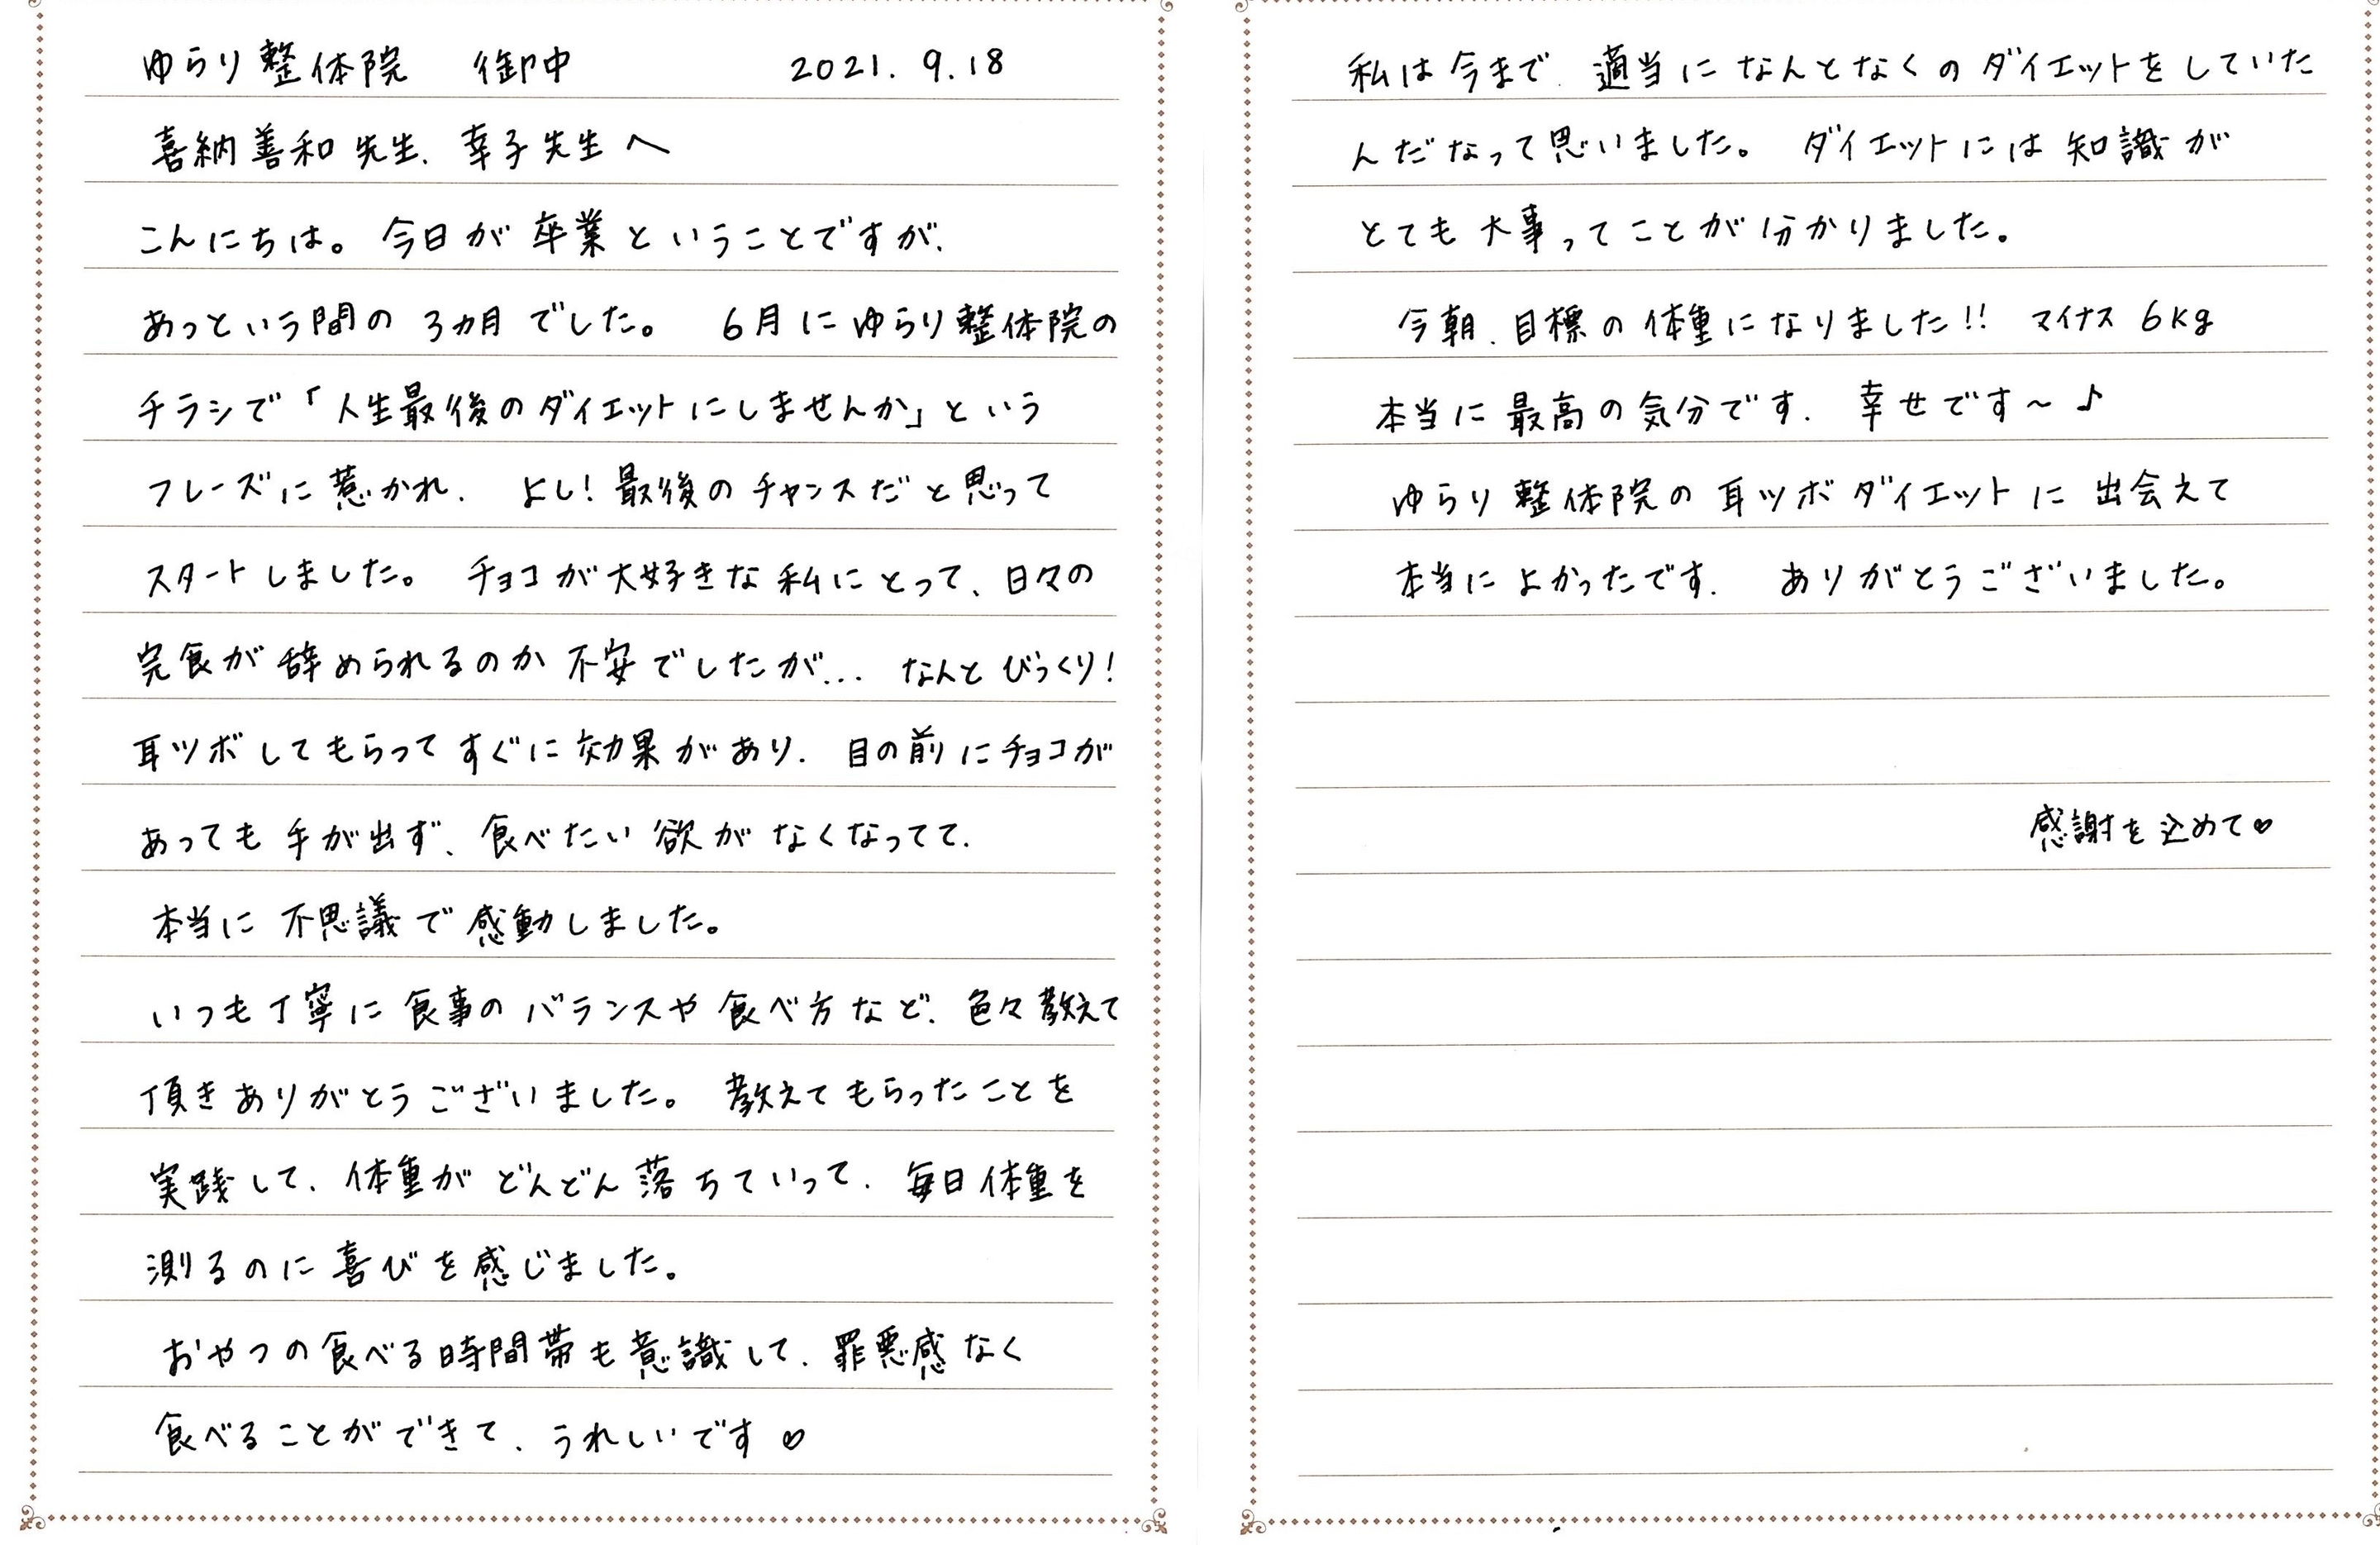 ゆらり整体院 御中 2021.9.18
喜納善和先生、幸子先生へ
こんにちは。今日が卒業ということですが、
あっという間の3ヵ月でした。 6月にゆらり整体院の
チラシで「人生最後のダイエットにしませんか」という
フレーズに惹かれ、よし!最後のチャンスだと思って
スタートしました。 チョコが大好きな私にとって、日々の
完食が辞められるのか不安でしたが… なんとびっくり!
耳ツボしてもらってすぐに効果があり、目の前にチョコが
あっても手が出ず、食べたい欲がなくなってて、
本当に不思議で感動しました。
いつも丁寧に食事のバランスや食べ方など、色々教えて
頂きありがとうございました。 教えてもらったことを
実践して、体重がどんどん落ちていって、毎日体重を
測るのに喜びを感じました。
おやつの食べる時間帯も意識して、罪悪感なく
食べることができて、うれしいです♡
私は今まで、適当になんとなくのダイエットをしていた
んだなって思いました。 ダイエットには知識が
とても大事ってことが分かりました。
今朝、目標の体重になりました!! マイナス6kg
本当に最高の気分です。 幸せです〜♪
ゆらり整体院の耳ツボダイエットに出会えて
本当によかったです。 ありがとうございました。
感謝を込めて♡